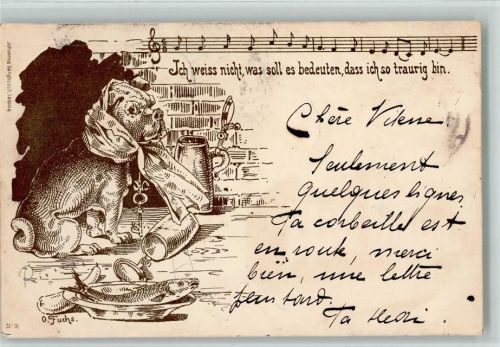 Ich weiss nicht, was soll es bedeuten, dass ich so traurig bin.
Chère
Seulement
quelques lignes
Ta corbeille est
en route, merci
bien, une lettre
plus tard.
Ta
O. Fuchs.